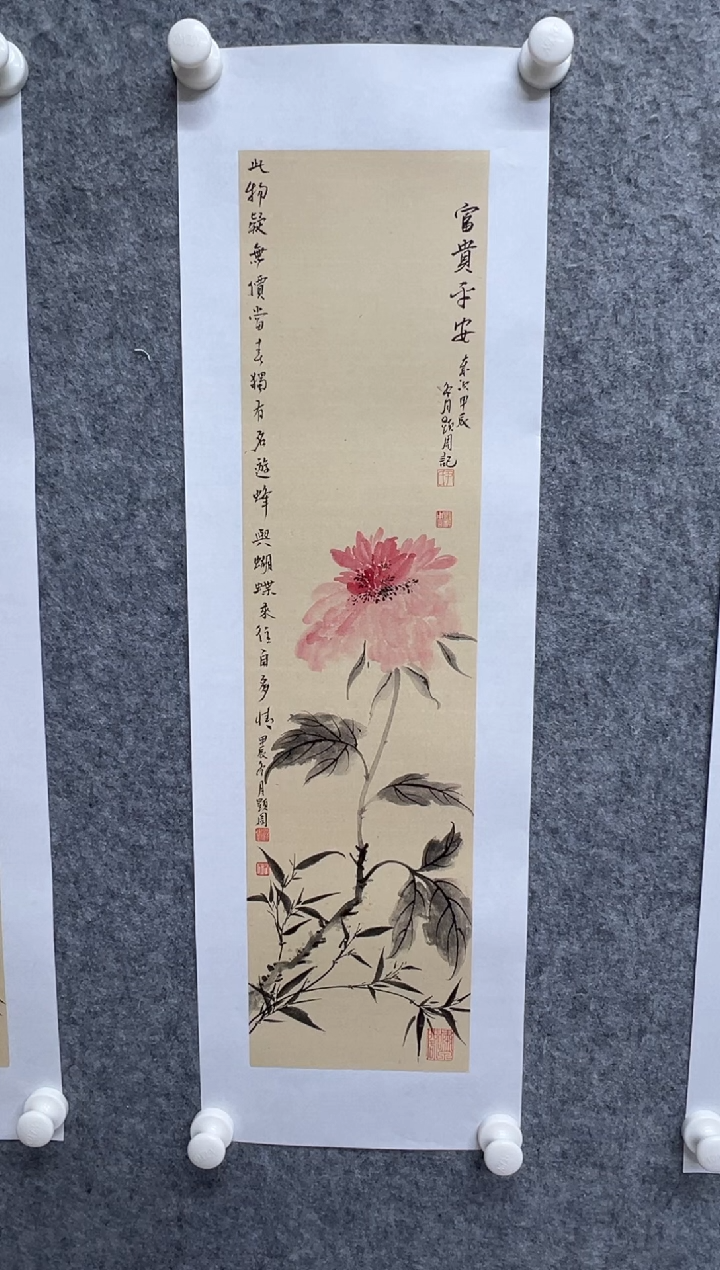 富貴平安
歲次甲辰
冬月顯周記
此物疑無價當春獨有名遊蜂與蝴蝶來往自多情甲辰冬月顯周